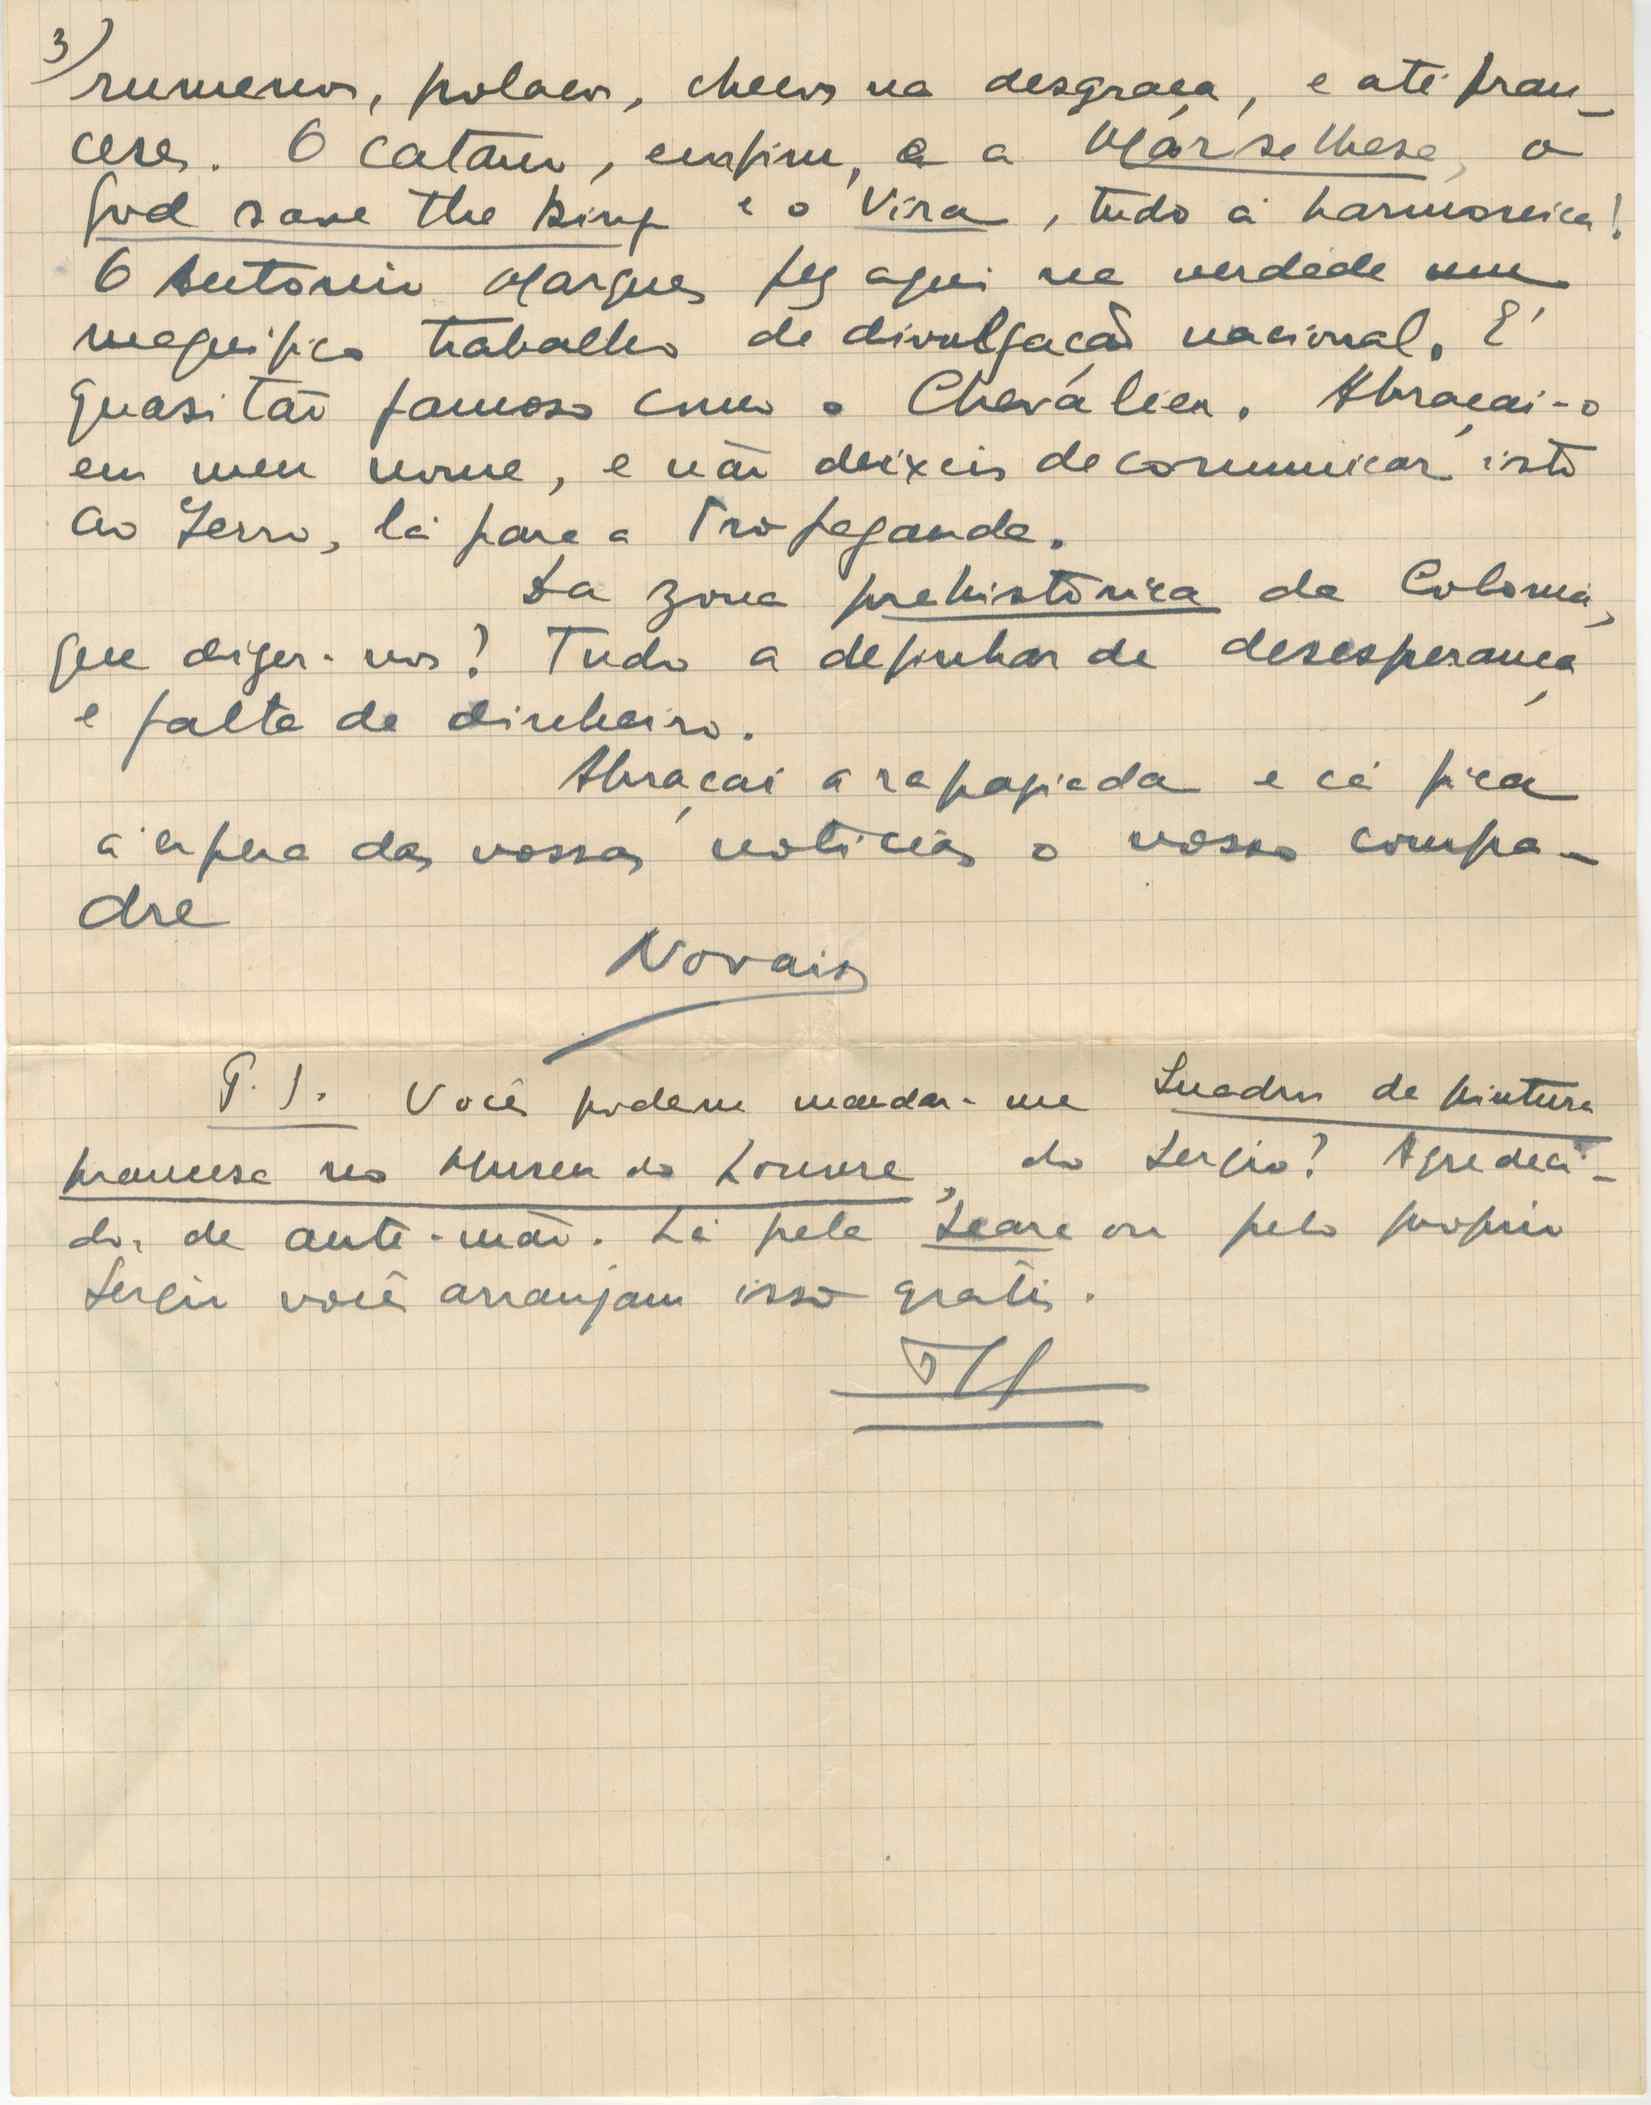 3)
rumenos, polacos, checos na desgraça, e até fran-
ceses. O catano, emfim, e a Marselhesa, o
God save the King e o Vira, tudo á harmonica!
O Antonio Marques fez aqui na verdade um
magnifico trabalho de divulgação nacional. É
quasi tão famoso como o Cheválier. Abraçai-o
em meu nome, e não deixeis de comunicar isto
ao Ferro, lá para a Propaganda.
Da zona prehistórica da Colonia,
que dizer-vos? Tudo a definhar de desesperança
e falta de dinheiro.
Abraçai a rapaziada e cá fica
á espera das vossas noticias o vosso compa-
dre
Novais
P.S. Vocês podem mandar-me Quadros de pintura
francesa no Museu do Louvre, do Sergio? Agradeci-
do, de ante-mão. Lá pela Seara ou pelo proprio
Sergio vocês arranjam isso gratis.